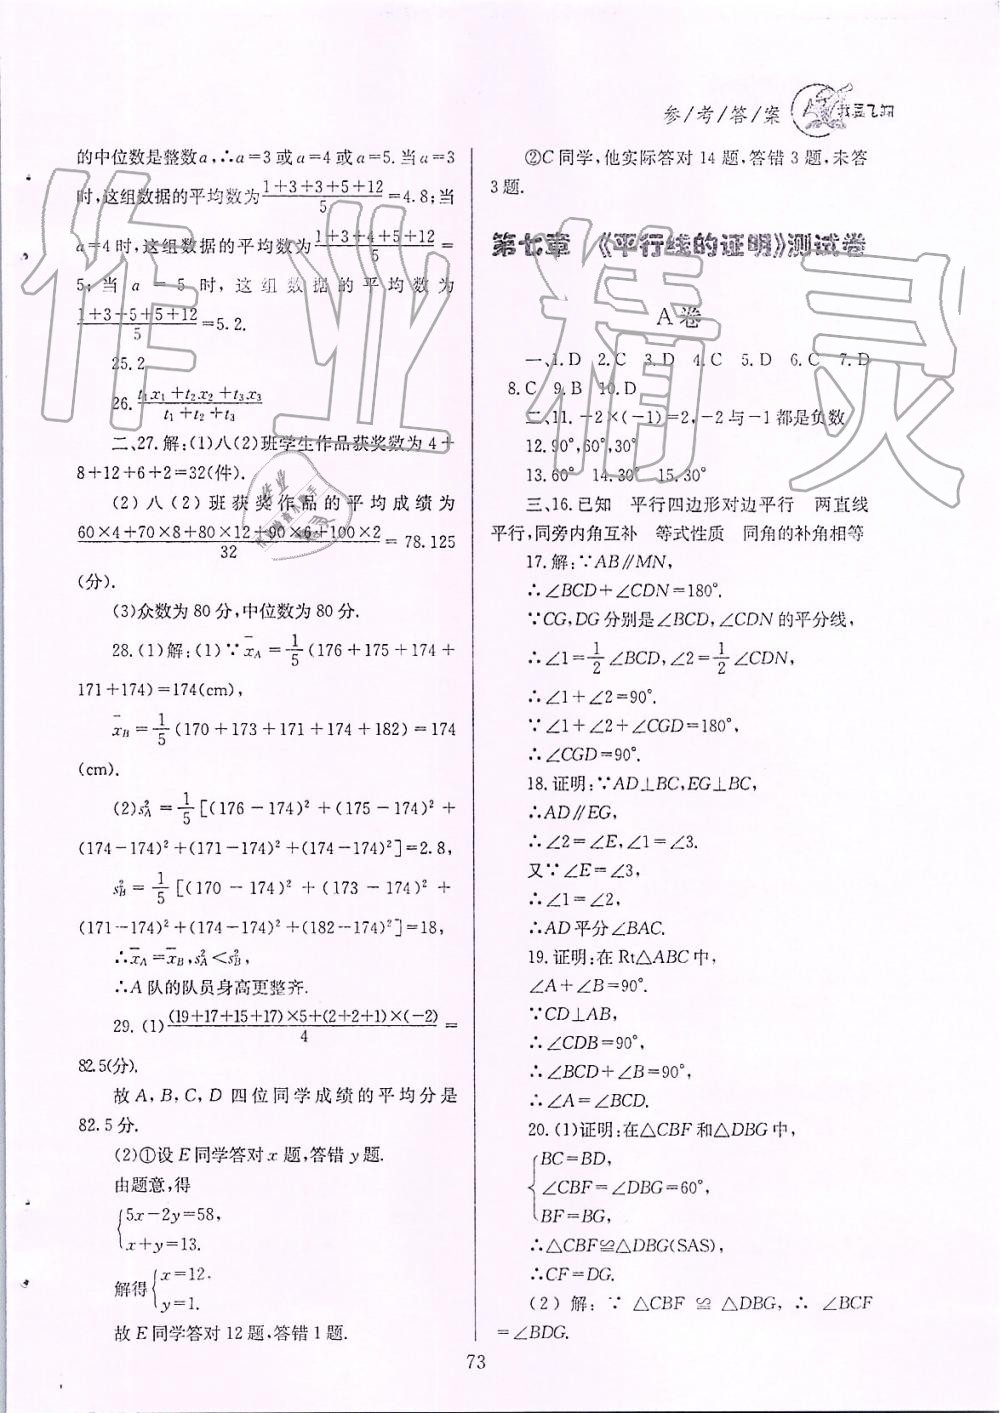 参/考/答/案
的中位数是整数a,∴a=3或a=4或a=5.当a=3
时,这组数据的平均数为(1+3+3+5+12)/5=4.8;当
a=4时,这组数据的平均数为(1+3+4+5+12)/5=
5;当a=5时,这组数据的平均数为
(1+3+5+5+12)/5=5.2.
25.2
26.(t₁x₁+t₂x₂+t₃x₃)/(t₁+t₂+t₃)
二、27.解:(1)八(2)班学生作品获奖数为4+
8+12+6+2=32(件).
(2)八(2)班获奖作品的平均成绩为
(60×4+70×8+80×12+90×6+100×2)/32=78.125
(分).
(3)众数为80分,中位数为80分.
28.(1)解:(1)∵x̄_A=1/5(176+175+174+
171+174)=174(cm),
x̄_B=1/5(170+173+171+174+182)=174
(cm).
(2)s²_A=1/5[(176-174)²+(175-174)²+
(174-174)²+(171-174)²+(174-174)²]=2.8,
s²_B=1/5[(170-174)²+(173-174)²+
(171-174)²+(174-174)²+(182-174)²]=18,
∴x̄_A=x̄_B,s²_A<s²_B,
∴A队的队员身高更整齐.
29.(1)((19+17+15+17)×5+(2+2+1)×(-2))/4=
82.5(分).
故A,B,C,D四位同学成绩的平均分是
82.5分.
(2)①设E同学答对x题,答错y题.
由题意,得
{5x-2y=58,
x+y=13.
解得{x=12.
y=1.
故E同学答对12题,答错1题.
②C同学,他实际答对14题,答错3题,未答
3题.
第七章 《平行线的证明》测试卷
A卷
一、1.D 2.C 3.D 4.C 5.D 6.C 7.D
8.C 9.B 10.D
二、11.-2×(-1)=2,-2与-1都是负数
12.90°,60°,30°
13.60° 14.30° 15.30°
三、16.已知 平行四边形对边平行 两直线
平行,同旁内角互补 等式性质 同角的补角相等
17.解:∵AB∥MN,
∴∠BCD+∠CDN=180°.
∵CG,DG分别是∠BCD,∠CDN的平分线,
∴∠1=1/2∠BCD,∠2=1/2∠CDN,
∴∠1+∠2=90°.
∵∠1+∠2+∠CGD=180°,
∴∠CGD=90°.
18.证明:∵AD⊥BC,EG⊥BC,
∴AD∥EG,
∴∠2=∠E,∠1=∠3.
又∵∠E=∠3,
∴∠1=∠2,
∴AD平分∠BAC.
19.证明:在Rt△ABC中,
∠A+∠B=90°.
∵CD⊥AB,
∴∠CDB=90°,
∴∠BCD+∠B=90°,
∴∠A=∠BCD.
20.(1)证明:在△CBF和△DBG中,
{BC=BD,
∠CBF=∠DBG=60°,
BF=BG,
∴△CBF≌△DBG(SAS),
∴CF=DG.
(2)解:∵△CBF≌△DBG,∴∠BCF
=∠BDG.
73
作业精灵